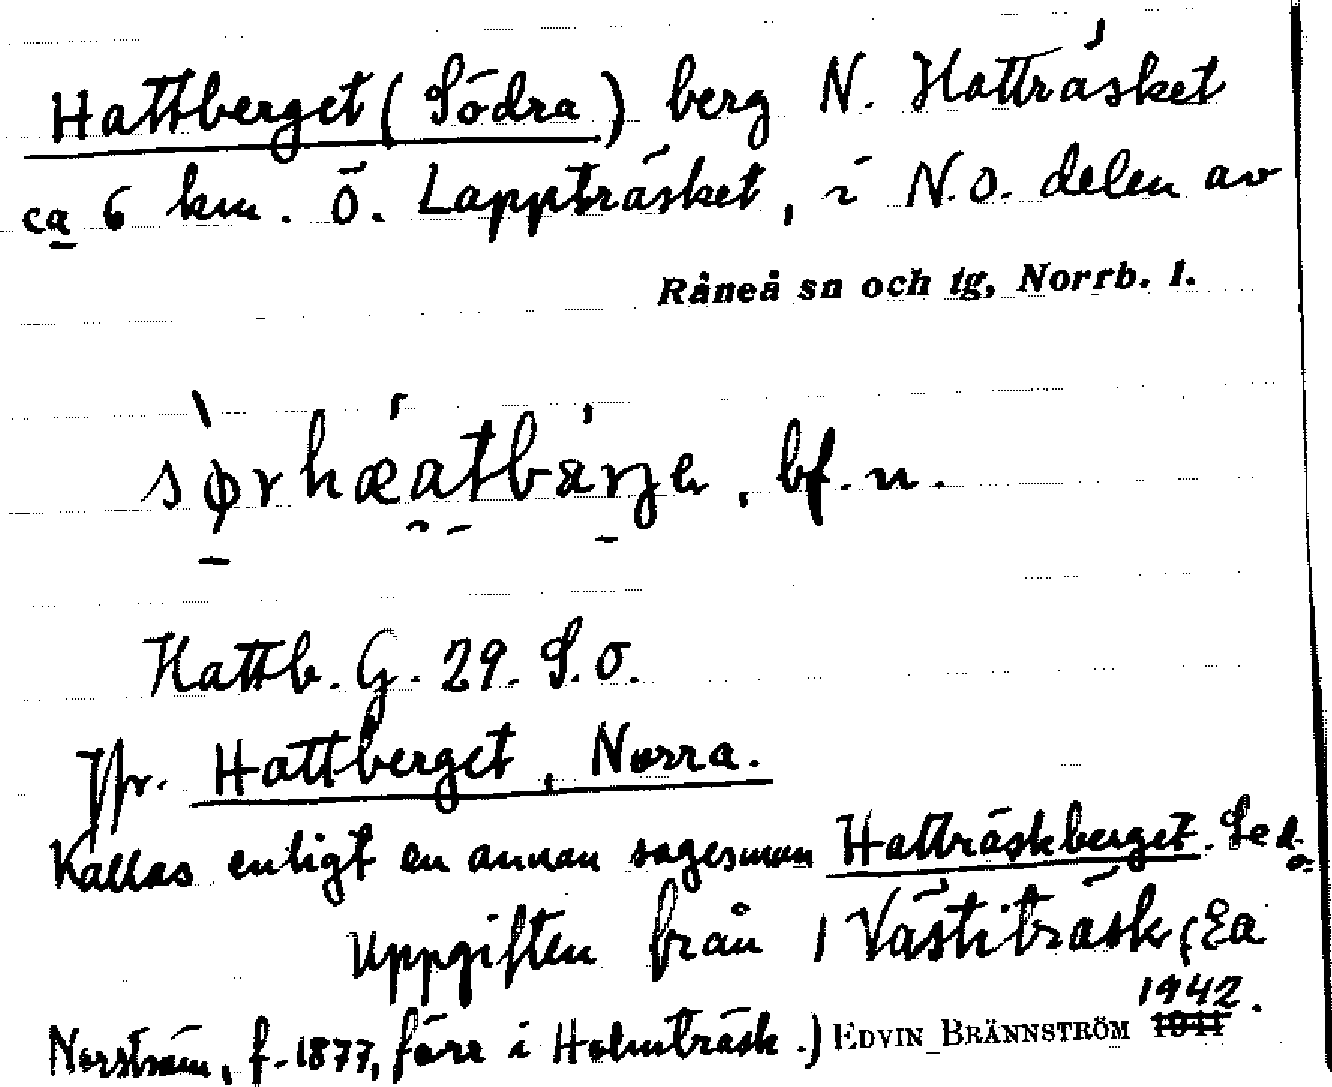 Hattberget (Södra) berg N. Hatträsket
ca 6 km. Ö. Lappträsket, i N.O. delen av
Råneå sn och tg, Norrb. l.
bf. n.
Hattb. G. 29. S.O.
Jfr. Hattberget, Norra.
Kallas enligt en annan sagesman Hatträskberget. Se d. o.
Uppgiften från 1 Västiträsk (Ea
Norström, f. 1877, förr i Holmträsk.) EDVIN BRÄNNSTRÖM 1942.